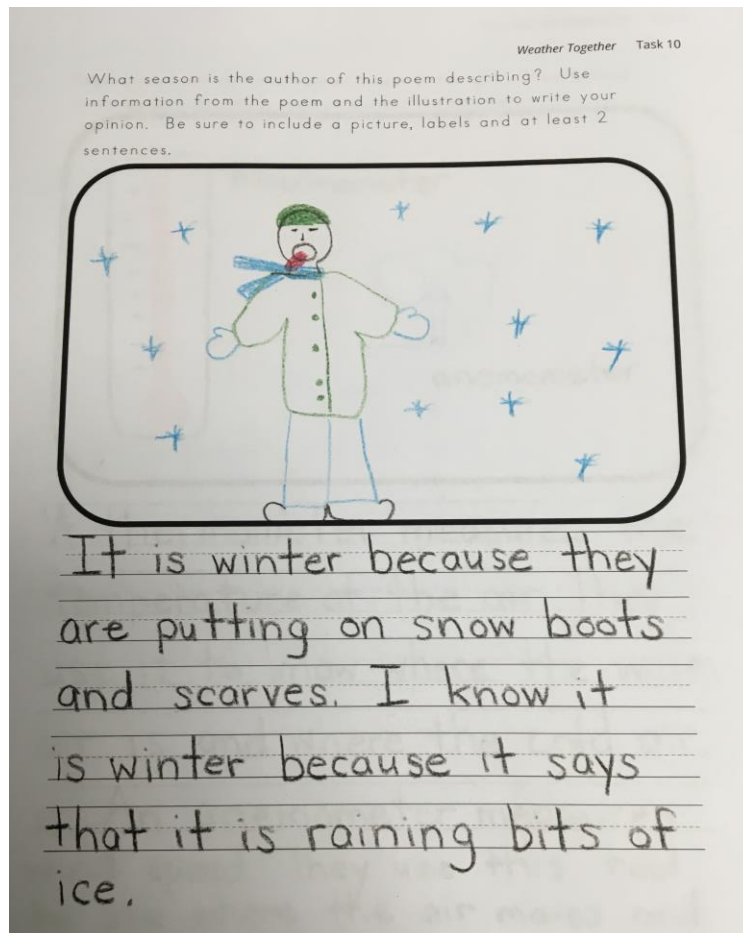 Weather Together Task 10
What season is the author of this poem describing? Use
information from the poem and the illustration to write your
opinion. Be sure to include a picture, labels and at least 2
sentences.
It is winter because they
are putting on snow boots
and scarves. I know it
is winter because it says
that it is raining bits of
ice.